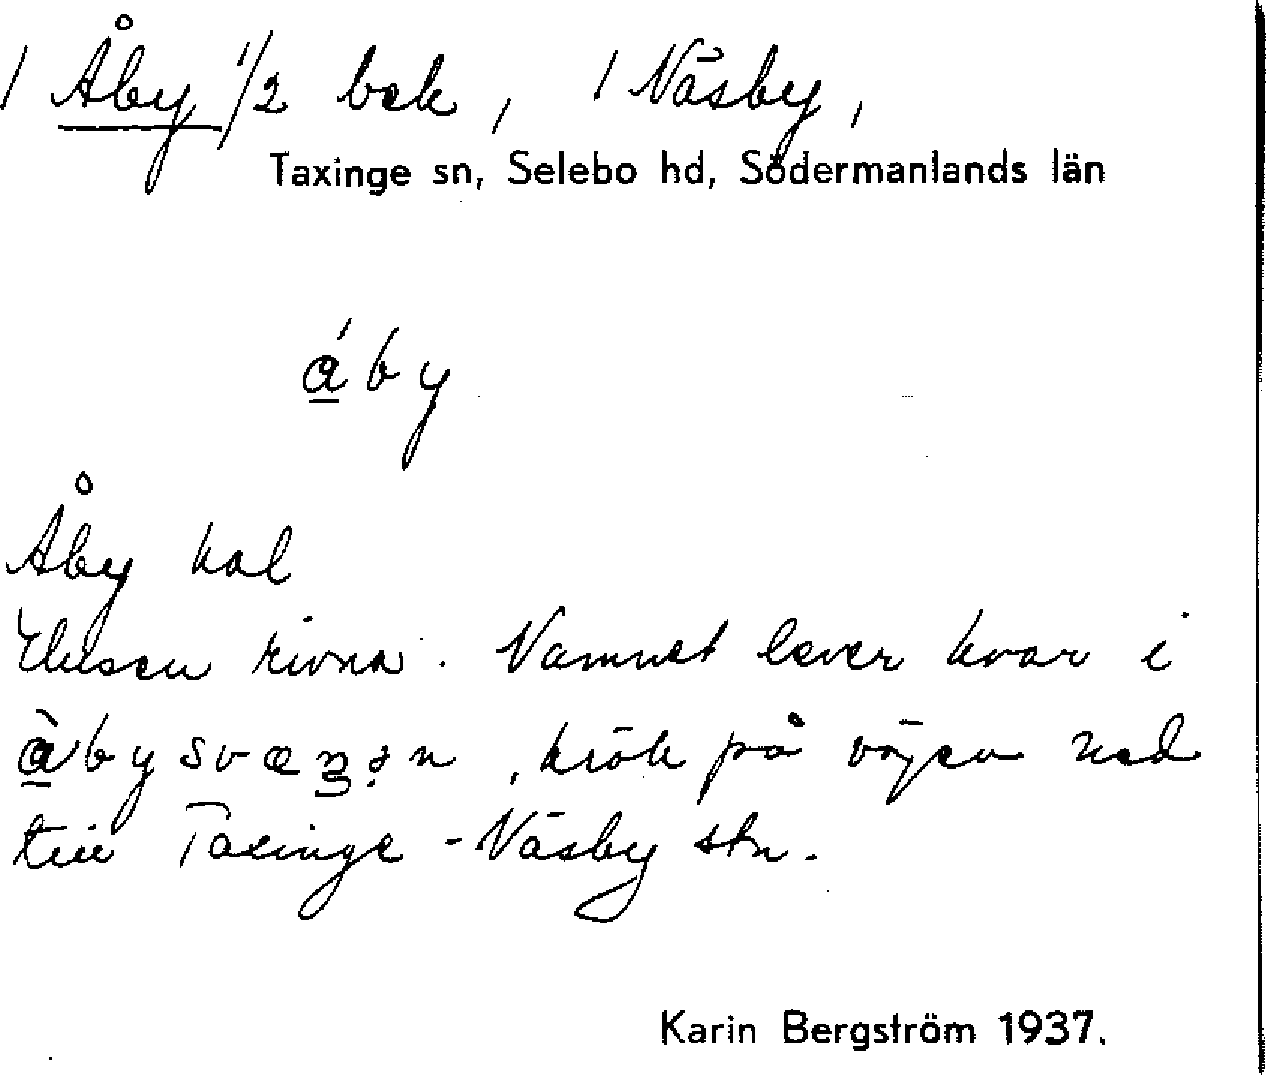 / Åby 1/2 bek, / Näsby,
Taxinge sn, Selebo hd, Södermanlands län
á̲by
Åby kal
Husen rivna. Namnet lever kvar i
à̲bysvæŋən, krök på vägen ned
till Taxinge-Näsby stn.
Karin Bergström 1937.